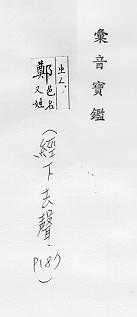 彙音寶鑑
出入、
鄭 邑名
又姓
(經下去聲.
P187)